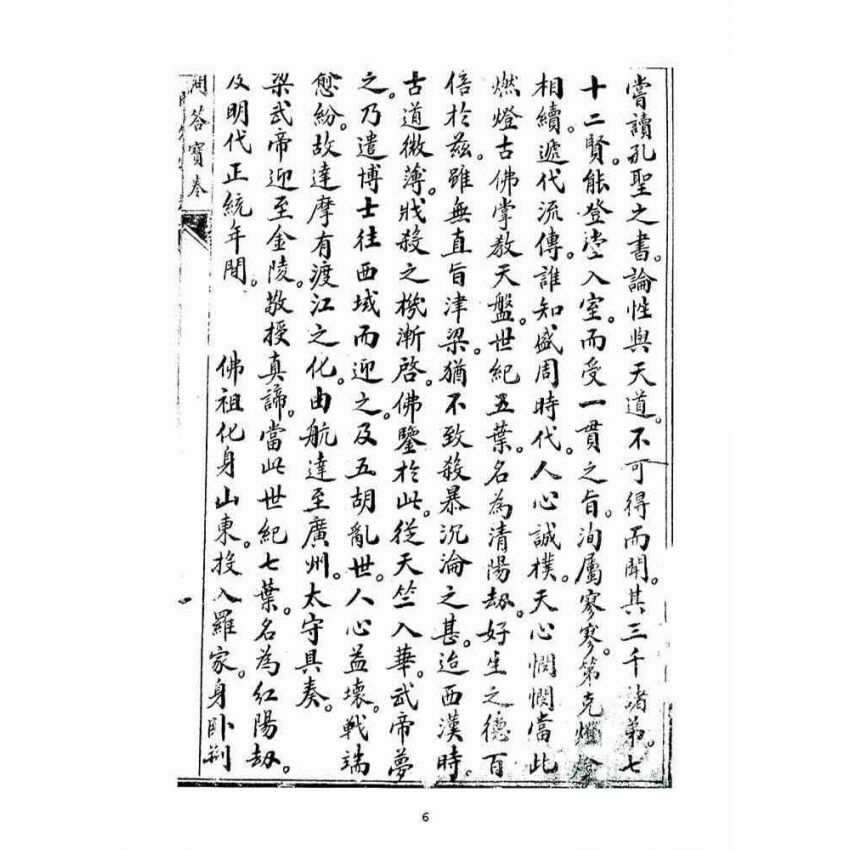 嘗讀孔聖之書。論性與天道。不可得而聞。其三千諸弟。七
十二賢。能登堂入室。而受一貫之旨。洵屬寥寥。第克燈
相續。遞代流傳。誰知盛周時代。人心誠樸。天心憫憫。當此
燃燈古佛掌教天盤。世紀五葉。名為清陽劫。好生之德。百
倍於茲。雖無直旨津梁。猶不致殺暴沉淪之甚。迨西漢時。
古道微薄。戕殺之機漸啓。佛鑒於此。從天竺入華。武帝夢
之。乃遣博士往西域而迎之。及五胡亂世。人心益壞。戰端
愈紛。故達摩有渡江之化。由航達至廣州。太守具奏。
梁武帝迎至金陵。敬授真諦。當此世紀七葉。名為紅陽劫。
及明代正統年間。 佛祖化身山東。投入羅家。身卧荊
問答寶卷
6